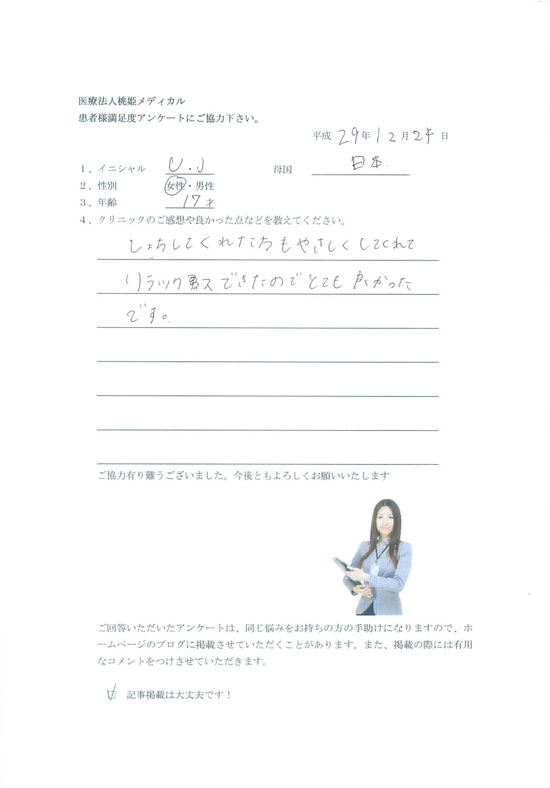 医療法人桃姫メディカル
患者様満足度アンケートにご協力下さい。
平成 29年 12月 24日
1、イニシャル U.J 母国 日本.
2、性別 女性・男性
3、年齢 17才
4、クリニックのご感想や良かった点などを教えてください。
しょちしてくれたちもやさしくしてくれて
リラックスできたのでとても良かった
です。
ご協力有り難うございました。今後ともよろしくお願いいたします
ご回答いただいたアンケートは、同じ悩みをお持ちの方の手助けになりますので、ホ
ームページのブログに掲載させていただくことがあります。また、掲載の際には有用
なコメントをつけさせていただきます。
記事掲載は大丈夫です！